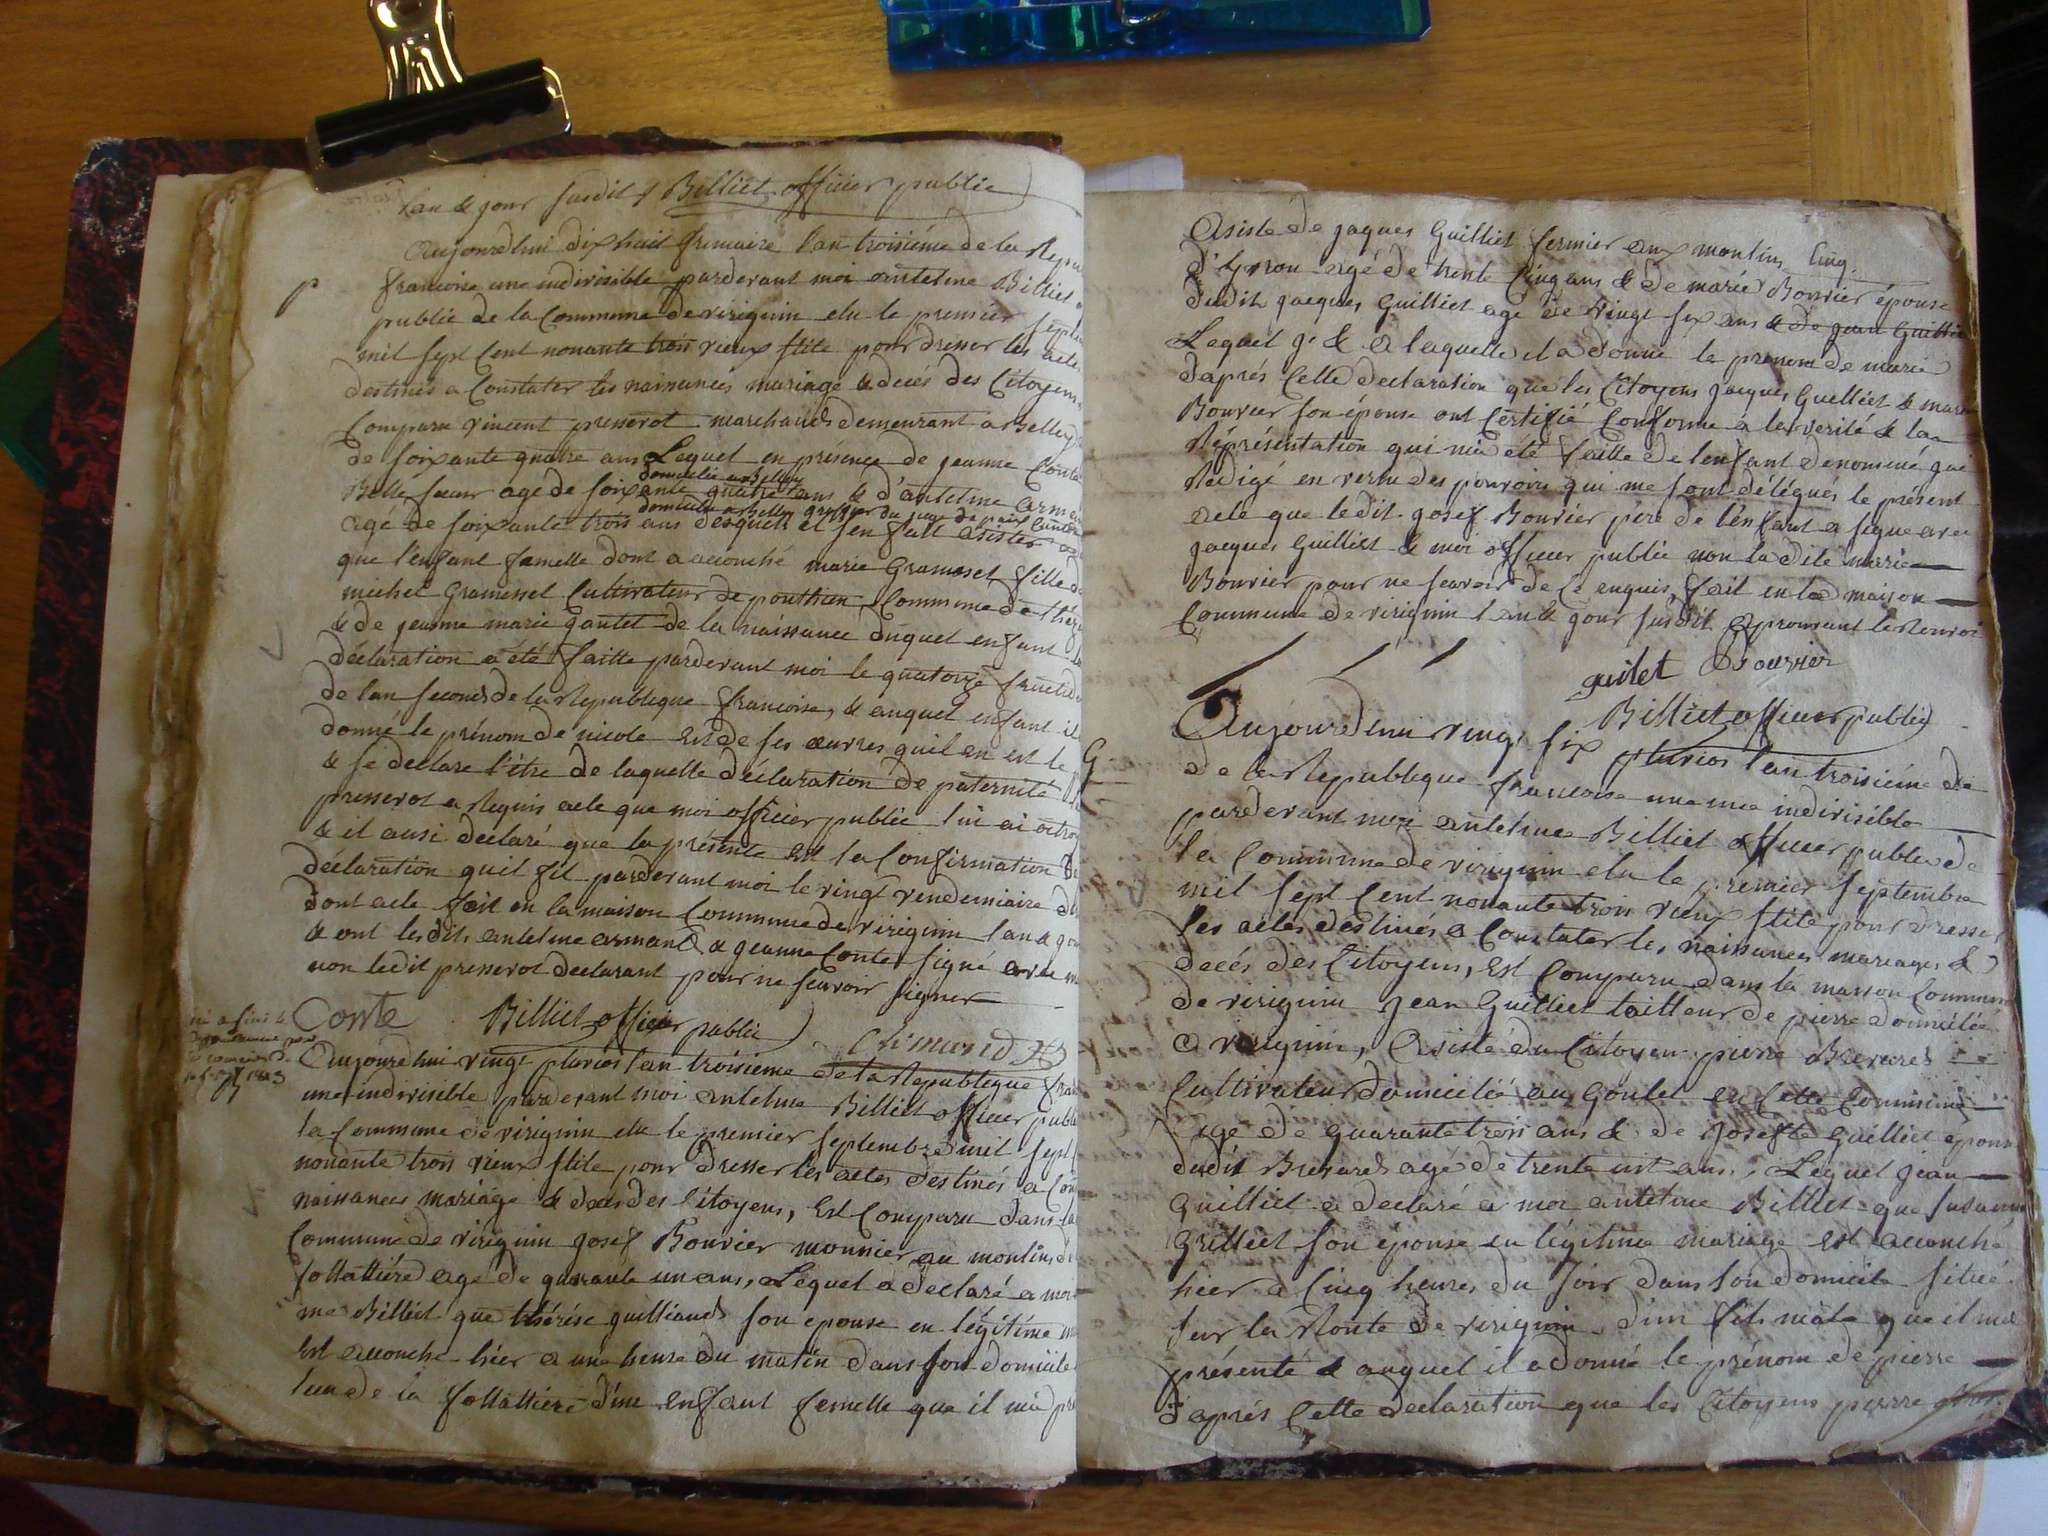 l'an & jour susdit / Billiet officier public
Aujourdhui dix huit frimaire l'an troisiéme de la Repu
francoise une indivisible parderant moi antelme Billiet
public de la Commune de virignin elu le premier septem
mil sept Cent nonante trois vieux stile pour dresser les actes
destinés a Constater les naissances mariage & decés des Citoyens
Comparu vincent presserot marchand demeurant a Belley
de soixante quatre ans Lequel en présence de jeanne Conte
domicilie a Belley
Belle soeur agé de soixante quatre ans & d'antelme arman
domicilie a Belley greffier du juge de paix
agé de soixante trois ans desquels il s'en fait asister
que l'enfant femelle dont a accouché marie Gramosel fille de
michel Gramossel Cultivateur de ponthun Commune de
& de jeanne marie gantet de la naissance duquel enfant la
déclaration a été faitte parderant moi le quatorze fructid
de l'an second de la Republique francoise, & auquel enfant il
donné le prénom de nicole Est de ses oeuvres quil en est le p
& se declare l'être de laquelle déclaration de paternité
presserot a Requis acte que moi officier public lui ai octro
& il ausi declaré que la présente Est la Confirmation de
déclaration quil fit parderant moi le vingt vendemiaire d
dont acte fait en la maison Commune de virignin l'an & jou
& ont lesdits antelme armand & jeanne Conte signé avec m
non ledit presserot declarant pour ne scavoir signer
Conte Billiet officier public Armand
Aujourdhui vingt pluvios l'an troisieme de la Republique fran
une indivisible parderant moi antelme Billiet officier public
la Commune de virignin elu le premier septembre mil sept
nonante trois vieux stile pour dresser les actes destinés a Con
naissances mariage & deces des Citoyens, Est Comparu dans la
Commune de virignin Josef Bouvier monnier au moulin d
follatiére agé de quarante un ans, Lequel a declaré a moi
me Billiet que thérése guilliand son epouse en légitime m
Est accouché hier a une heure du matin dans son domicile
lieu de la follattiere d'un enfant femelle que il m'a pre
Asisté de jaques Guilliet fermier aux moulins Cinq
d'Yvron agé de trente Cinq ans & de marie Bouvier épouse
dudit jacques Guilliet agé de vingt six ans & de jean Guillie
Lequel j. & a laquelle il a donné le prenom de marie
d'aprés Cette declaration que les Citoyens jacques Guilliet & marie
Bouvier son épouse ont Certifié Conforme a la verité & la
Réprésentation qui m'a été faitte de l'enfant denommé jai
Redigé en vertu des pouvoirs qui me sont délégués le présent
acte que ledit josef Bouvier pere de l'enfant a signe avec
jacques Guilliet & moi officier public non la dite marie
Bouvier pour ne scavoir de Ce enquis, fait en la maison
Commune de virignin l'an & jour susdit aprouvant le Renvoi
guilet Bouvier
Billiet officier public
Aujourdhui vingt six pluvios l'an troisieme de
de la Republique francoise une indivisible
parderant moi antelme Billiet officier public de
la Commune de virignin elu le premier septembre
mil sept Cent nonante trois vieux stile pour dresser
les actes destinés a Constater les naissances mariages &
decés des Citoyens, Est Comparu dans la maison Commune
de virignin Jean Guilliet tailleur de pierre domicilié
a virignin, Asisté du Citoyen pierre Brevard
Cultivateur domicilié au Goulet en Cette Commune
agé de quarante trois ans & de Josefte Guilliet épouse
dudit Brevard agé de trente uit ans, Lequel jean
Guilliet a declaré a moi antelme Billiet que susanne
Grilliet son épouse en légitime mariage Est accouché
hier a Cinq heures du soir dans son domicile situé
sur la Route de virignin d'un fils mâle que il m'a
présenté & auquel il a donné le prénom de pierre
d'aprés Cette declaration que les Citoyens pierre